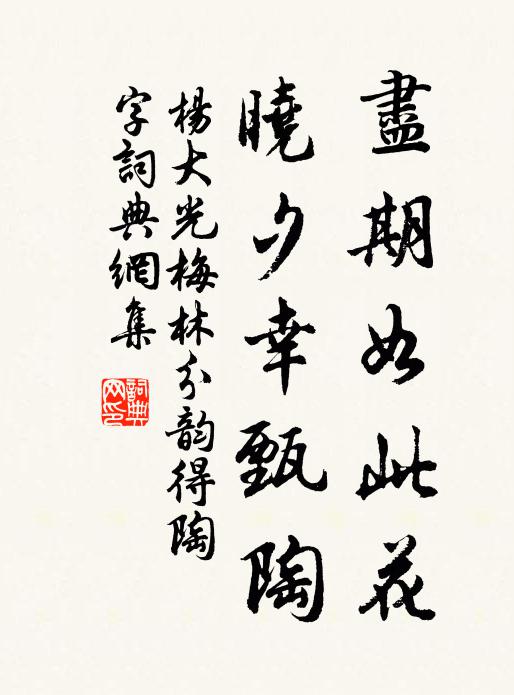 盡期如此花
曉夕幸甄陶
楊大光梅林分韵得陶
字詞典網集
詞典网印